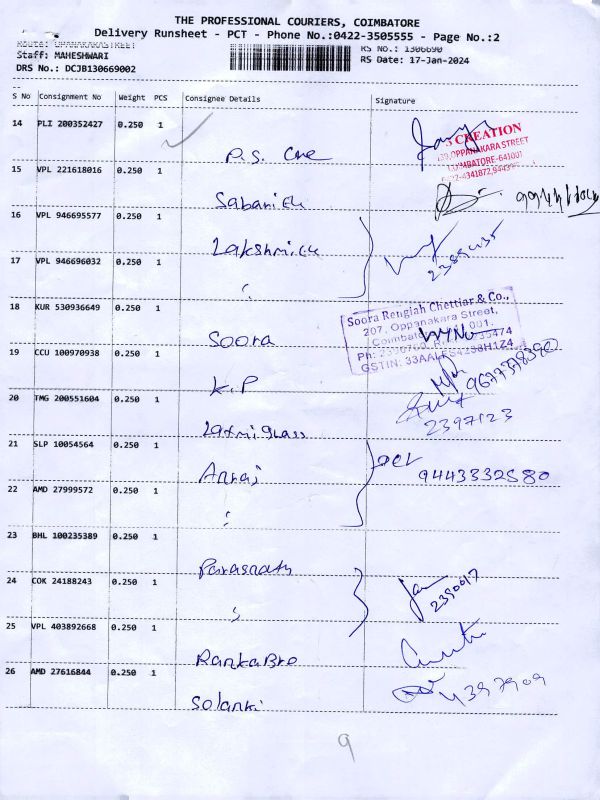 THE PROFESSIONAL COURIERS, COIMBATORE
Delivery Runsheet - PCT - Phone No.:0422-3505555 - Page No.:2
Route: OPPANAKARASTREET RS No.: 1306690
Staff: MAHESHWARI RS Date: 17-Jan-2024
DRS No.: DCJB130669002
S No Consignment No Weight PCS Consignee Details Signature
14 PLI 200352427 0.250 1 P.S. Cre
CREATION
OPPANAKARA STREET
COIMBATORE-641001
15 VPL 221618016 0.250 1 Sabari Ek
16 VPL 946695577 0.250 1 Lakshmi Ek
17 VPL 946696032 0.250 1 "
2389435
18 KUR 530936649 0.250 1 Soora
Soora Rengiah Chettiar & Co.,
207, Oppanakara Street,
Coimbatore 001.
Ph:
GSTIN: 33AALFS4298H1Z4
19 CCU 100970938 0.250 1 K.P
20 TMG 200551604 0.250 1 Laxmi Glass
2397123
21 SLP 10054564 0.250 1 Annai
9443332580
22 AMD 27999572 0.250 1 "
23 BHL 100235389 0.250 1 Parasnath
24 COK 24188243 0.250 1 "
2390017
25 VPL 403892668 0.250 1 Ranka Bro
26 AMD 27616844 0.250 1 Solanki
4397909
9